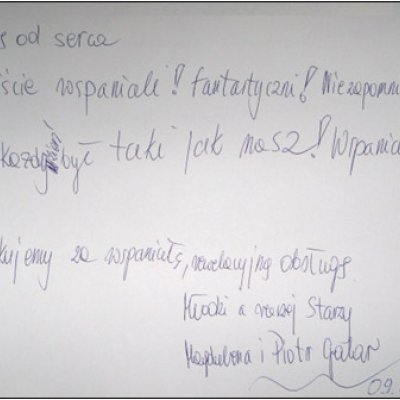 s od serca
ście wspaniali! Fantastyczni! Niezapomn
każdy był taki jak nasz! Wspania
kujemy za wspaniałą, rewelacyjną obsługę.
Młodzi a raczej Starzy
Magdalena i Piotr Galar
09.